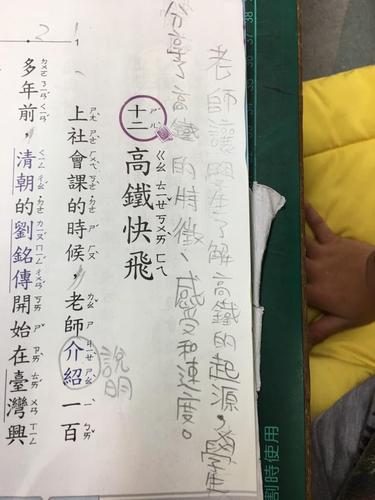 割時使用
老師讓學生了解高鐵的起源，學生
分享了高鐵的特徵、感受和速度。
十二 高鐵快飛
上社會課的時候，老師介紹一百
說明
多年前，清朝的劉銘傳開始在臺灣興